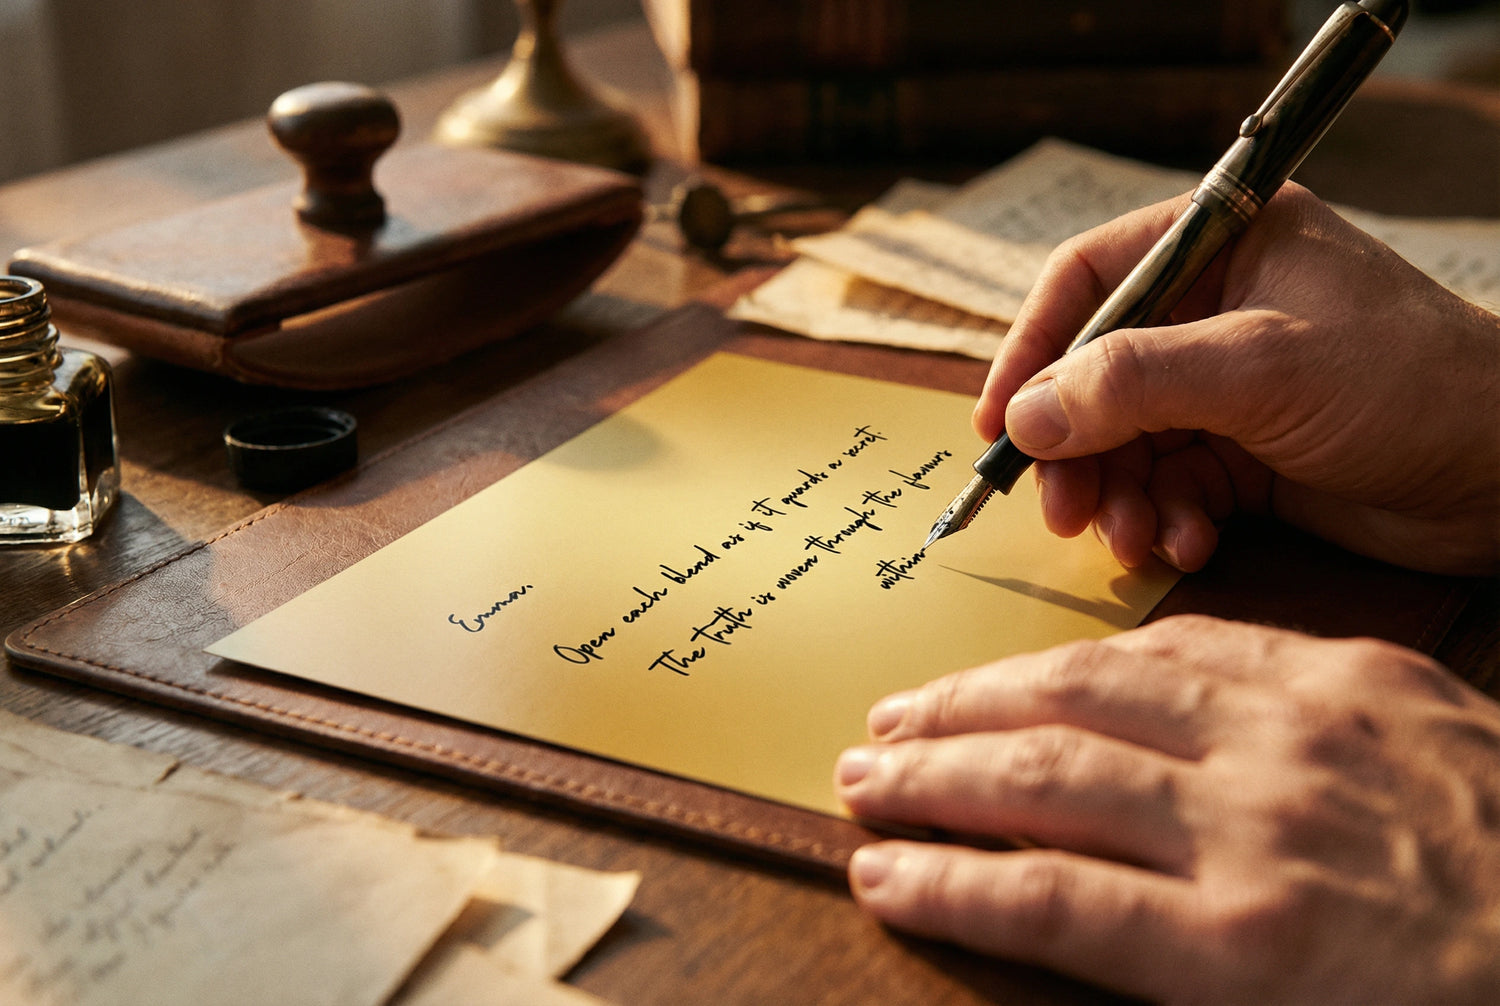 Emma,
Open each blend as if it guards a secret.
The truth is woven through the flavours
within